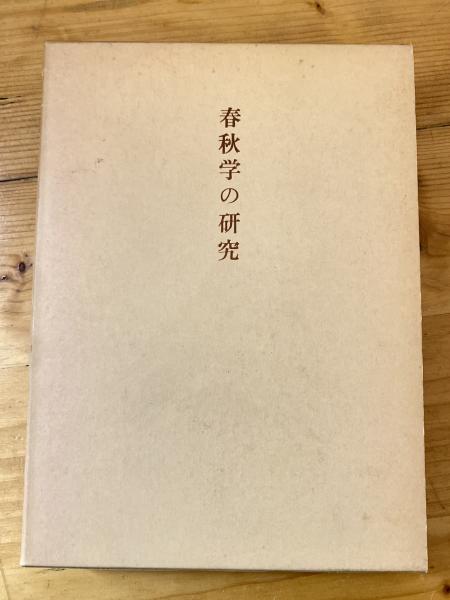 春秋学の研究